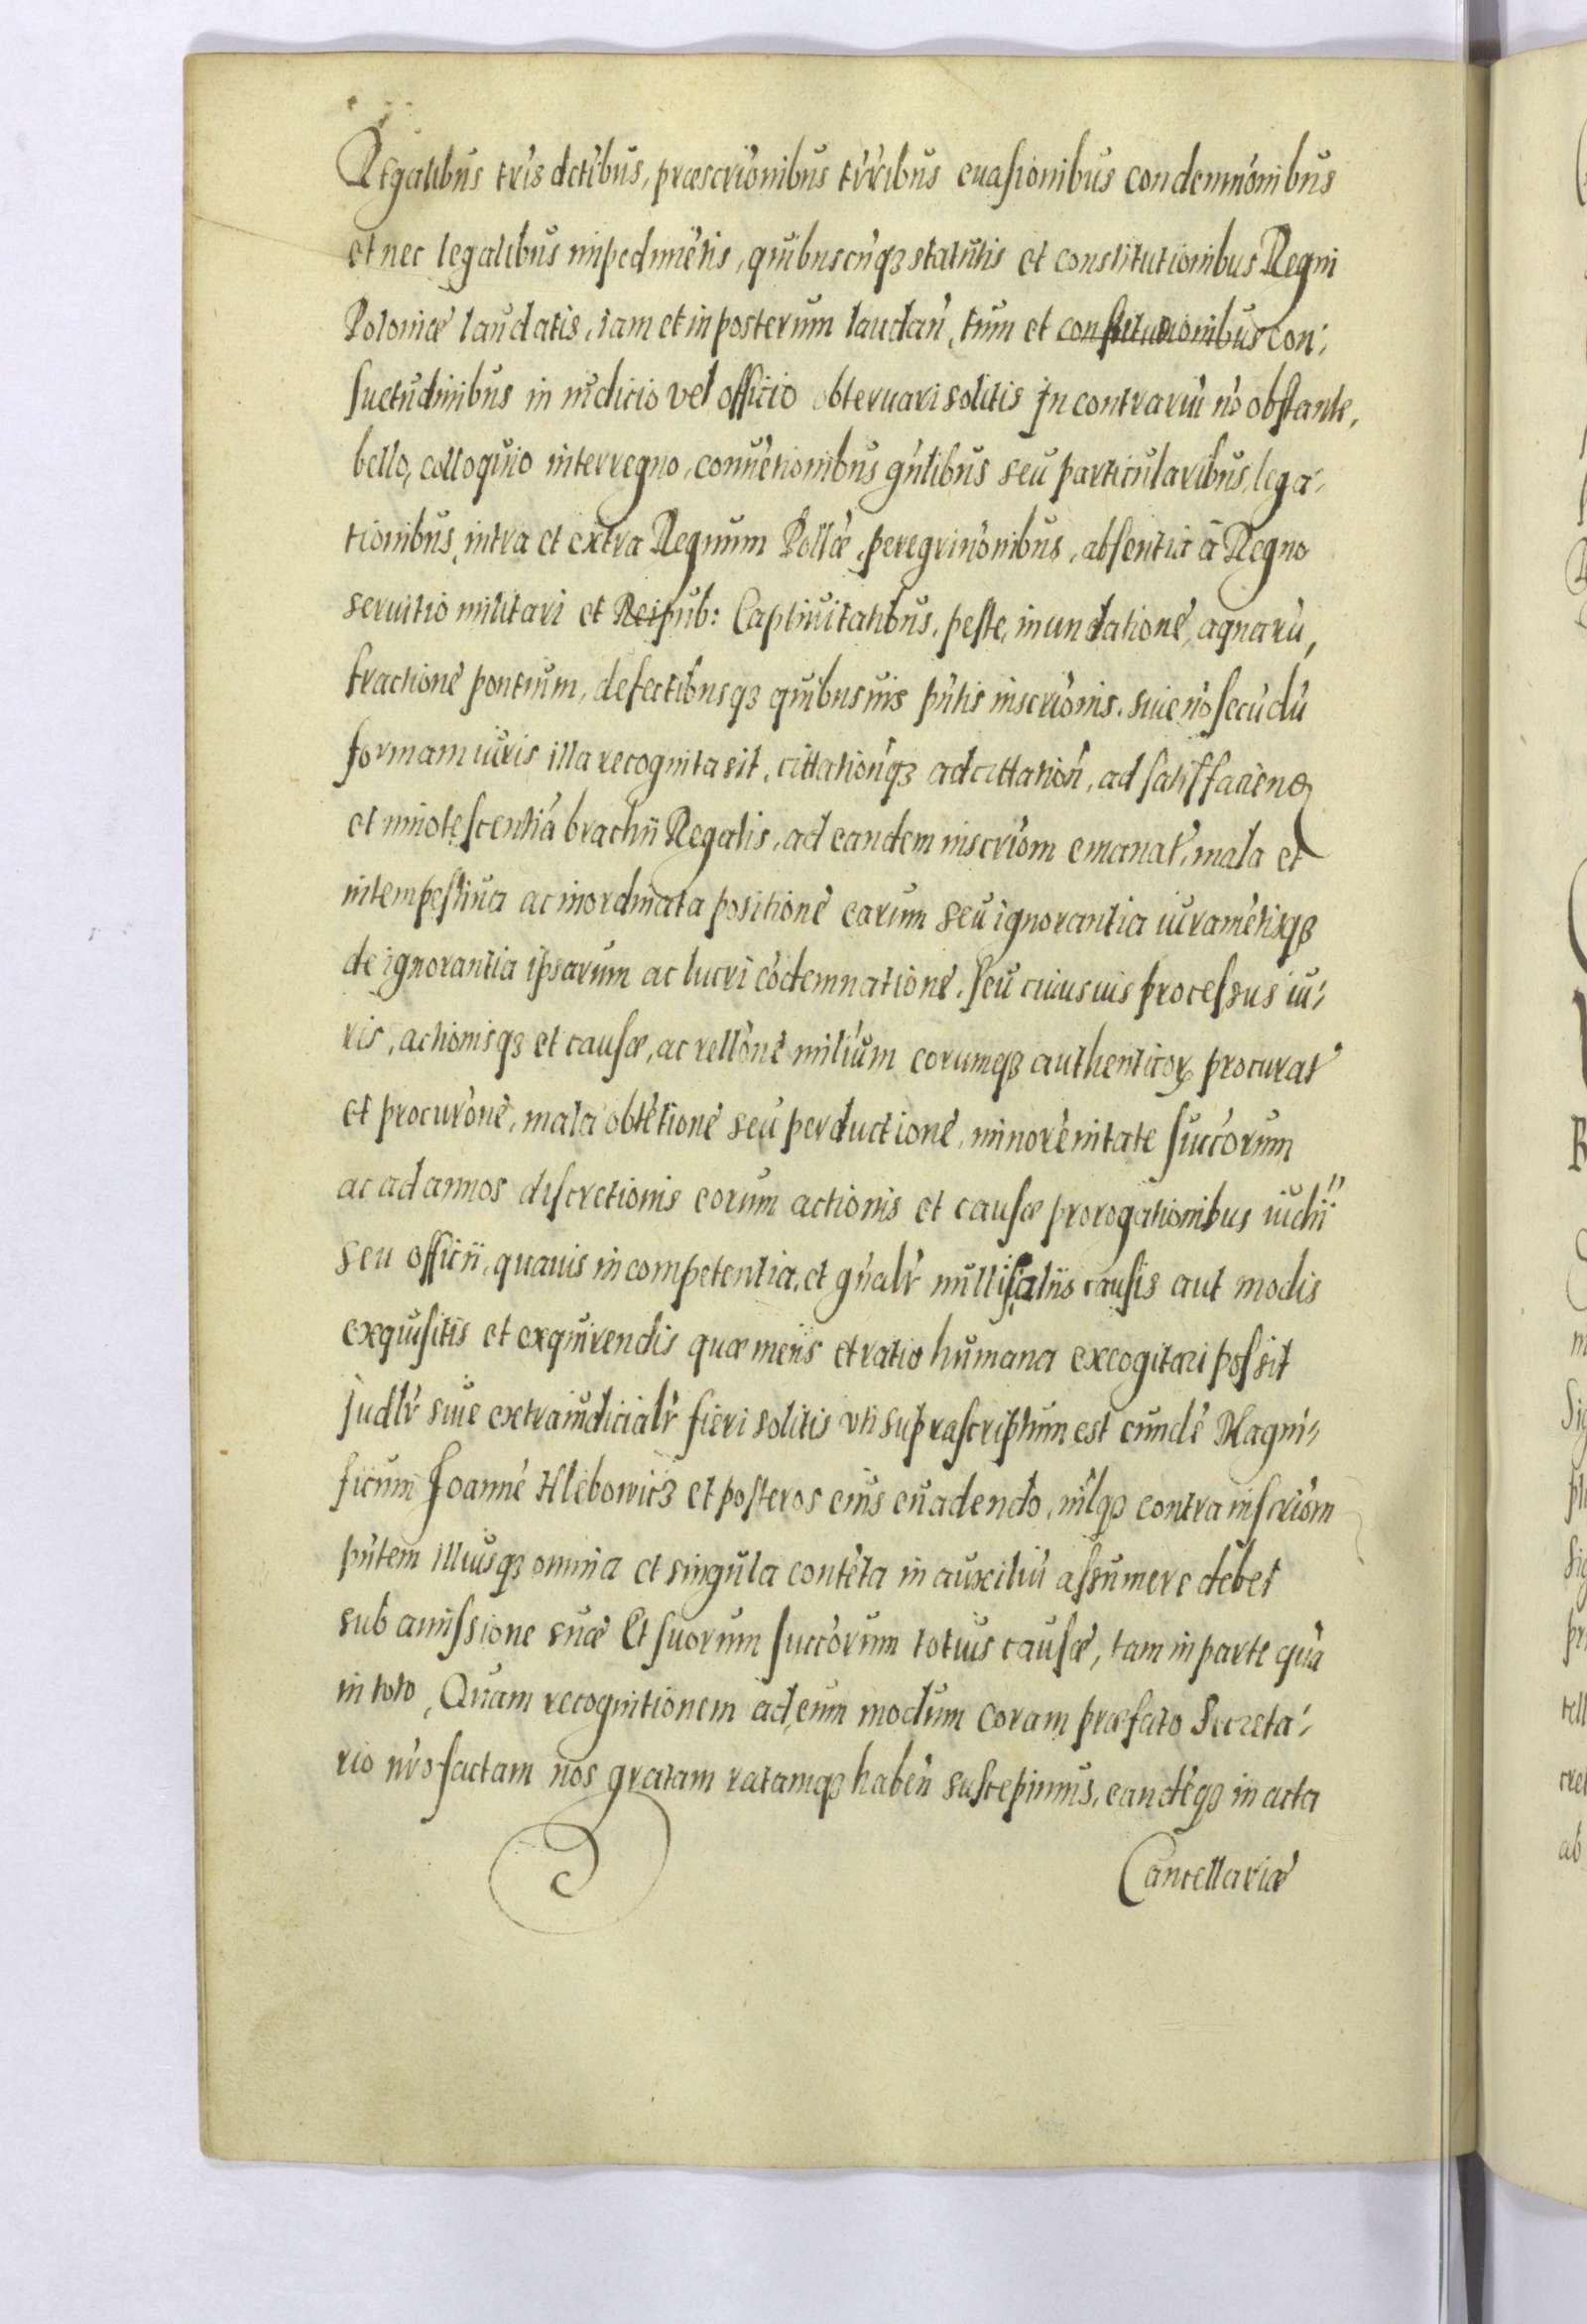 Regalibus tris dctibus, præscrionibus trribus euasionibus condemnonibus
et nec legalibus impedimētis, quibuscūqȝ statutis et constitutionibus Regni
Poloniæ laudatis, iam et in posterum laudan̄, tum et constitutionibus con:
suetudinibus in iudicio vel officio obseruari solitis In contrariū nō obstante,
bello, colloquio interregno, conuētionibus gn̄libus seu particularibus, lega-
tionibus, intra et extra Regnum Pollæ, peregrinōnibus, absentia à Regno
seruitio militari et Reipub: Captiuitatibus, peste, inundatione, aquarū,
fractione pontium, defectibusqȝ quibusuis pn̄tis inscrionis, siue nō secūdū
formam iuris illa recognita sit, cittationqȝ adcittation̄, ad satisfaciend
et innotescentiā brachii Regalis, ad eandem inscriom emanat, mala et
intempestiua ac inordinata positione earum seu ignorantia iuramētisqȝ
de ignorantia ipsarum ac lucri cōdemnatione, seu cuiusuis processus iu:
ris, actionisqȝ et causæ, ac rellōne militum eorumqȝ authenticorꝝ procurat
et procurōne, mala obtētione seu perductione, minorēnitate succorum
ac ad annos discretionis eorum actionis et causæ prorogationibus iudii
seu officii, quauis incompetentia, et gn̄alr nullis aliis causis aut modis
exquisitis et exquirendis quæ mens et ratio humana excogitari possit
Judlr siue extraiudicialr fieri solitis vti suprascriptum est eundē Magni-
ficum Joannē Hlebowicȝ et posteros eius euadendo, nīlqȝ contra inscriom
pn̄tem illiusqȝ omnia et singula contēta in auxiliū assumere debet
sub amissione suæ Et suorum succorum totius causæ, tam in parte quā
in toto, Quam recognitionem ad eum modum coram præfato Secreta-
rio nr̄o factam nos gratam ratamqȝ haben̄ suscepimus, eandēqȝ in acta
Cancellariæ